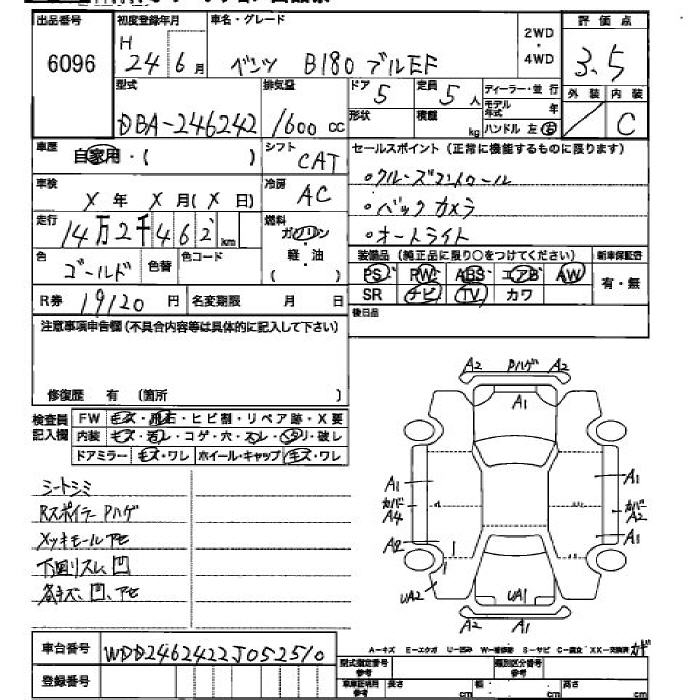 出品番号 初度登録年月 車名・グレード 2WD・4WD 評価点
6096 H 24 年 6 月 ベンツ B180 ブルEF 3.5
型式 排気量 ドア 5 定員 5 人 ディーラー・並行 外装 内装
DBA-246242 1600 cc 形状 積載 kg モデル年式 年 ハンドル 左 右 C
車歴 自家用・( ) シフト CAT セールスポイント (正常に機能するものに限ります)
車検 X 年 X 月 (X 日) 冷房 AC ・クルーズコントロール
・バックカメラ
走行 14万2千462 km 燃料 ガソリン・軽油 ( ) ・オートライト
色 ゴールド 色替 色コード 装備品 (純正品に限り○をつけてください) 新車保証書
PS PW ABS エアB AW 有・無
R券 19120 円 名変期限 月 日 SR ナビ TV カワ
注意事項申告欄 (不具合内容等は具体的に記入して下さい) 後日品
修復歴 有 (箇所 )
検査員記入欄 FW キズ・飛石・ヒビ割・リペア跡・X要
内装 キズ・汚レ・コゲ・穴・スレ・ヘタリ・破レ
ドアミラー キズ・ワレ ホイール・キャップ キズ・ワレ
シートシミ
Rスポイラー Pハゲ
メッキモール アセ
下回リスレ、凹
各キズ、凹、アセ
A2 Pハゲ A2
A1
A1 A1
カバ A4 カバ A2
A2 A1
UA2 UA1
A2 A1
車台番号 WDD2462422J052510
A-キズ E-エクボ U-凹み W-補修跡 S-サビ C-腐食 XX-交換済
登録番号 型式指定番号 類別区分番号
車庫証明用参考 長さ cm 幅 cm 高さ cm